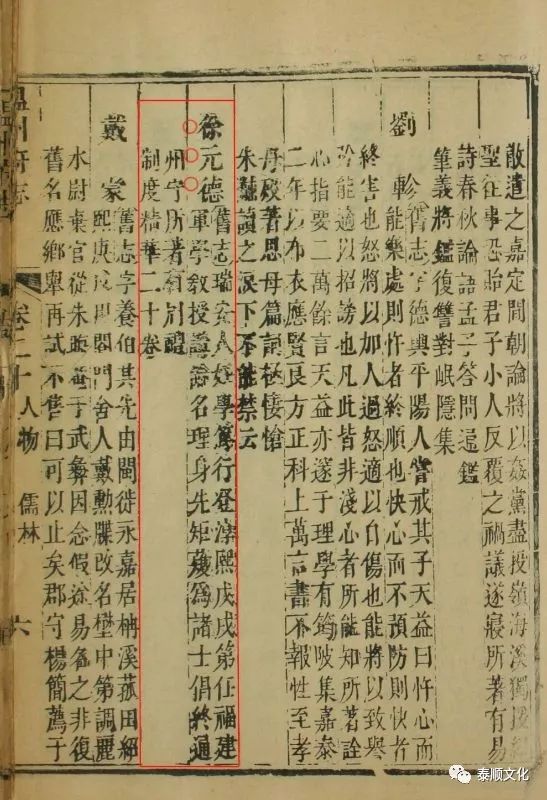 散遣之嘉定間朝論將以姦黨盡投嶺海溪獨援
聖往事恐貽君子小人反覆之禍議遂寢所著有易
詩春秋論語孟子答問通鑑
筆義將鑑復讐對岷隱集
劉軫舊志字德輿平陽人嘗戒其子天益曰忤心而
能樂處則忤者終順也快心而不預防則快者
終害也怒將以加人過怒適以自傷也能將以致譽
矜能適以招謗也凡此皆非淺心者所能知所著詮
心指要二萬餘言天益亦遂于理學有筠陂集嘉泰
二年以布衣應賢良方正科上萬言書不報性至孝
母歿著思母篇詞極悽愴
朱黼讀之淚下不能禁云
徐元德舊志瑞安人好學篤行登淳熙戊戌第任福建
軍學教授講論名理身先矩矱為諸士倡終通
州守所著有周禮
制度精華二十卷
戴蒙舊志字養伯其先由閩徙永嘉居楠溪菰田紹
熙庚戌用閤門舍人戴勲牒改名壄中第調麗
水尉棄官從朱晦菴于武彝因念假塗易名之非復
舊名應鄉舉再試不售曰可以止矣郡守楊簡薦于
溫州府志
卷二十
人物
儒林
六
泰顺文化